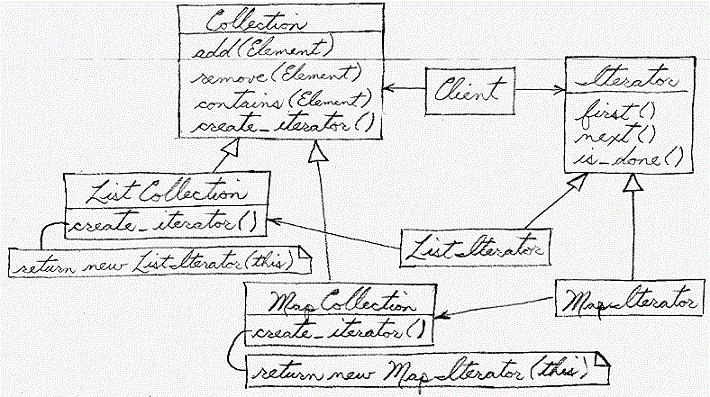 Collection
add(Element)
remove(Element)
contains(Element)
create_iterator()
Client
Iterator
first()
next()
is_done()
List Collection
create_iterator()
return new ListIterator(this)
ListIterator
Map Collection
create_iterator()
return new MapIterator(this)
MapIterator